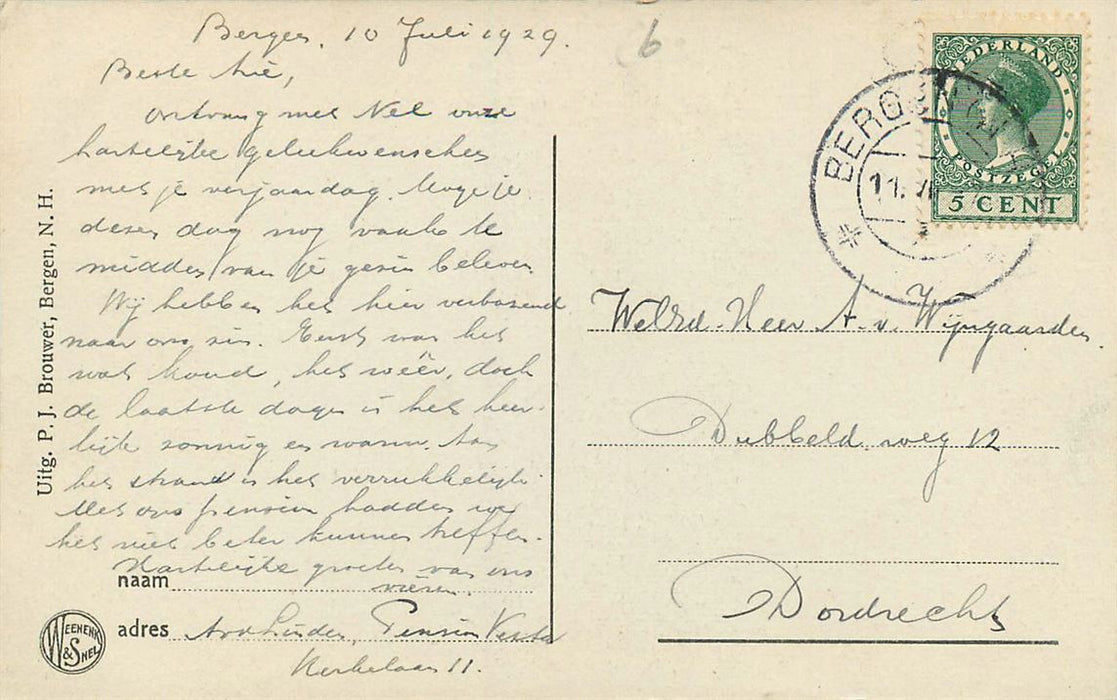 Bergen, 10 Juli 1929.
6
Beste
ontvang met Nel onze
hartelijke gelukwenschen
met je verjaardag. Moge je
dezen dag nog vaak te
midden van je gezin beleven.
Wij hebben het hier verbazend
naar ons zin. Eerst was het
wat koud, het weer, doch
de laatste dagen is het heer-
lijk zonnig en warm. Aan
het strand is het verrukkelijk.
Met ons pension hadden we
het niet beter kunnen treffen.
Hartelijke groeten van ons
vieren.
naam
adres Pension Vesta
Kerkelaan 11.
Uitg. P. J. Brouwer, Bergen, N. H.
WEENENK & SNEL
NEDERLAND
POSTZEGEL
5 CENT
BERGEN
11. VII
WelEd. Heer A. v. Wijngaarden.
Dubbeldweg 12
Dordrecht